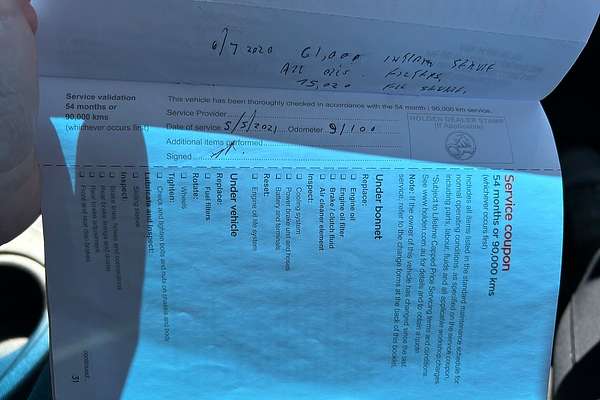 6/7 2020 61,000
All oils. FILTERS,
Service validation
54 months or
90,000 kms
(whichever occurs first)
This vehicle has been thoroughly checked in accordance with the 54 month / 90,000 km service.
Service Provider
Date of service 5/5/2021 Odometer 91100
Additional items performed
Signed
HOLDEN DEALER STAMP
(If Applicable)
Service coupon
54 months or 90,000 kms
(whichever occurs first)
Includes all items listed in the standard maintenance schedule for
normal operating conditions, as specified on the service coupon.
Includes parts, labour, fluids and all applicable workshop charges
Subject to Lifetime Capped Price Servicing terms and conditions.
See www.holden.com.au for details and to obtain a quote
Note: If the owner of this vehicle has changed since the last
service, refer to the change forms at the back of this booklet.
Under bonnet
Replace:
Engine oil
Engine oil filter
Brake / clutch fluid
Air cleaner element
Inspect:
Cooling system
Power brake unit and hoses
Battery and terminals
Reset:
Engine oil life system
Under vehicle
Replace:
Fuel filters
Rotate:
Wheels
Tighten:
Check and tighten bolts and nuts on chassis and body
Lubricate and Inspect:
Sliding sleeve
Inspect:
Brake lines, hoses and connections
Rear brake linings and drums
Rear brake adjustment
Front and rear disc brakes
continued..
31